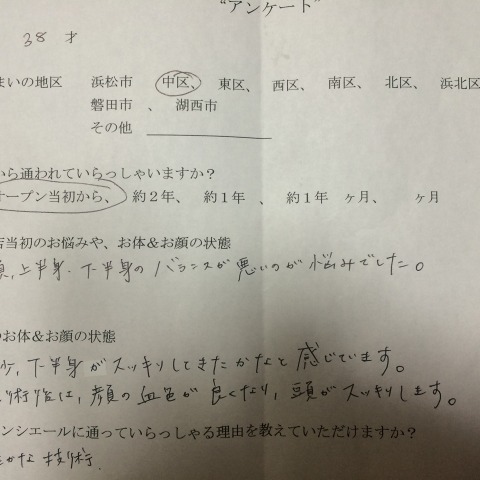 “アンケート”
38 才
まいの地区 浜松市 中区、 東区、 西区、 南区、 北区、 浜北区
磐田市 、 湖西市
その他
から通われていらっしゃいますか?
オープン当初から、 約2年、 約1年 、 約1年 ヶ月、 ヶ月
店当初のお悩みや、お体&お顔の状態
上半身、下半身のバランスが悪いのが悩みでした。
お体&お顔の状態
下半身がスッキリしてきたかなと感じています。
術後は、顔の血色が良くなり、頭がスッキリします。
ンシエールに通っていらっしゃる理由を教えていただけますか?
かな技術